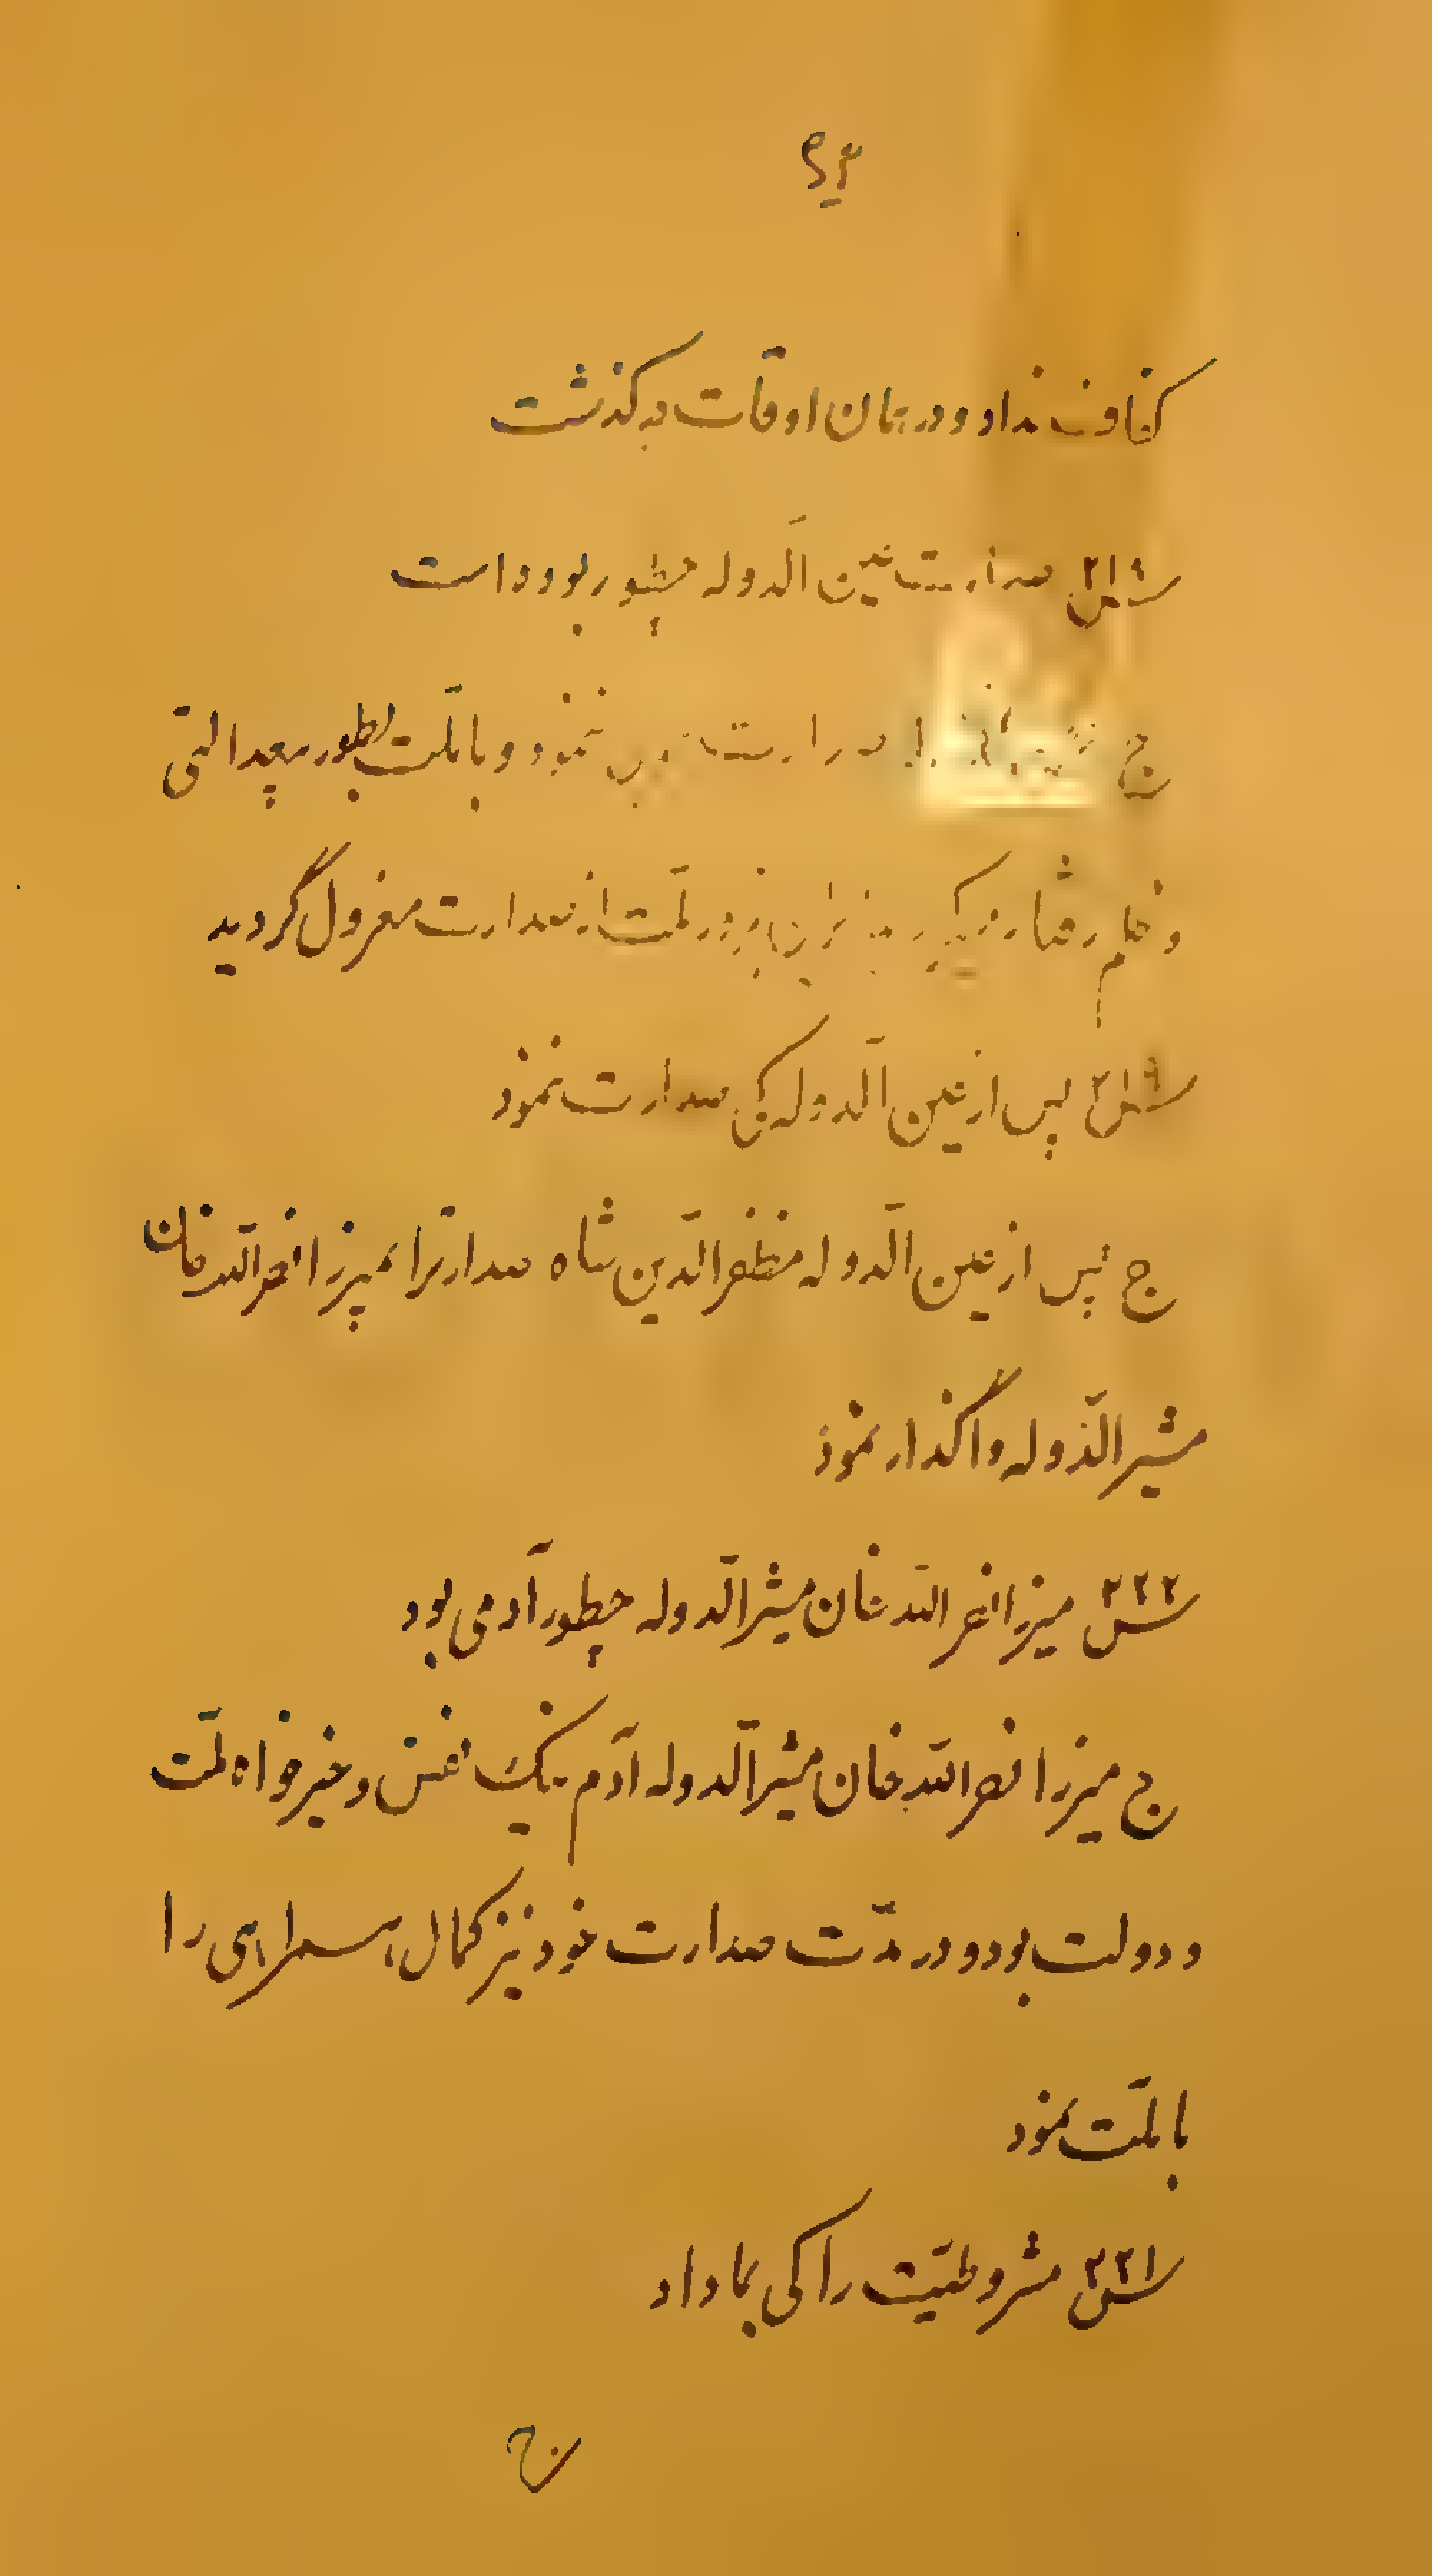 ۹۳
کفاف نداد و در همان اوقات درگذشت
س۲۱۹ صدارت عین الدوله چطور بوده است
ج صدارت خوبی ننمود و با ملّت بطور بیعدالتی
و ظلم رفتار میکرد بنابراین بزور ملّت از صدارت معزول گردید
س پس از عین الدّوله کی صدارت نمود
ج پس از عین الدّوله مظفرالدّین شاه صدارترا بمیرزا نصرالله خان
مشیرالدّوله واگذار نمود
س۲۲۲ میرزا نصرالله خان مشیرالدّوله چطور آدمی بود
ج میرزا نصرالله خان مشیرالدّوله آدم نیک نفس و خیرخواه ملّت
و دولت بود و در مدّت صدارت خود نیز کمال همراهی را
با ملّت نمود
س۲۲۱ مشروطیّت را کی بما داد
ج